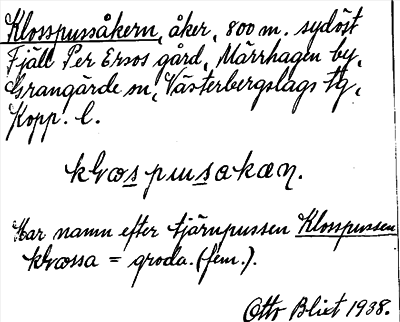 Klosspussåkern, åker, 800 m. sydöst
Fjäll Per Ersos gård, Märrhagen by,
Grangärde sn, Västerbergslags tg,
Kopp. l.
Har namn efter tjärnpussen Klosspussen
= groda. (fem.).
Otto Blixt 1938.